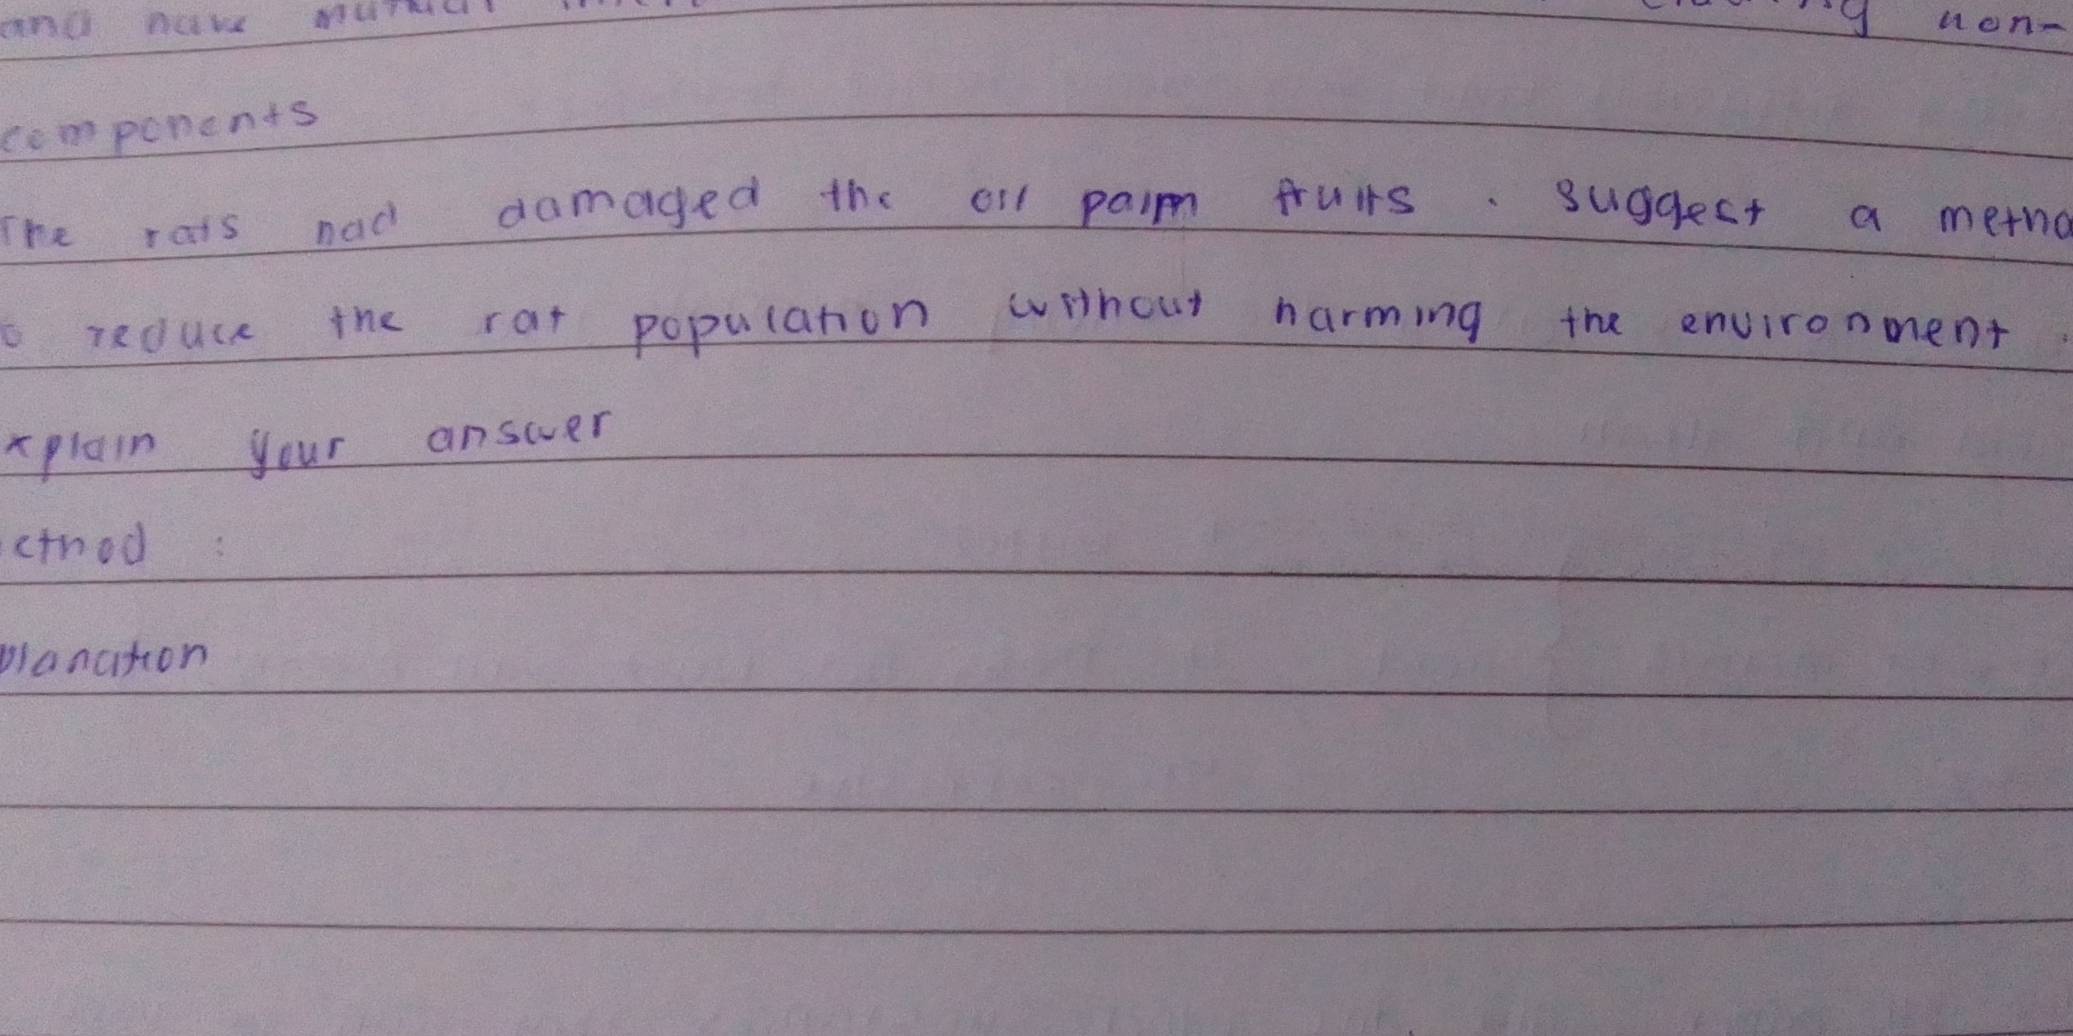 and have mutual non-
components
The rats had damaged the oil palm fruits. suggest a metho
o reduce the rat population without harming the environment.
xplain your answer
ethod :
planation